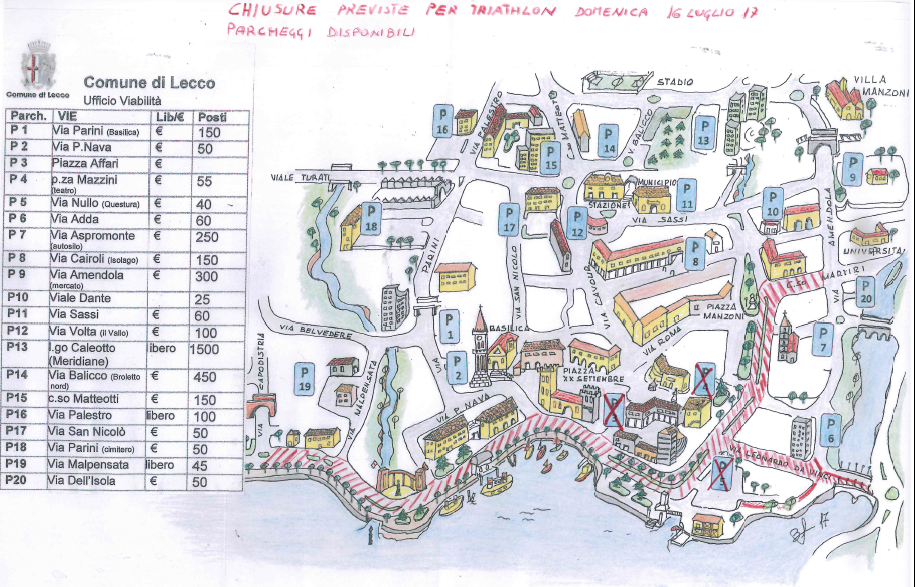 CHIUSURE PREVISTE PER TRIATHLON DOMENICA 16 LUGLIO 17
PARCHEGGI DISPONIBILI
Comune di Lecco
Comune di Lecco
Ufficio Viabilità
Parch. VIE Lib/€ Posti
P 1 Via Parini (Basilica) € 150
P 2 Via P.Nava € 50
P 3 Piazza Affari €
P 4 p.za Mazzini (teatro) € 55
P 5 Via Nullo (Questura) € 40
P 6 Via Adda € 60
P 7 Via Aspromonte (autosilo) € 250
P 8 Via Cairoli (Isolago) € 150
P 9 Via Amendola (mercato) € 300
P10 Viale Dante 25
P11 Via Sassi € 60
P12 Via Volta (Il Vallo) € 100
P13 l.go Caleotto (Meridiane) libero 1500
P14 Via Balicco (Broletto nord) € 450
P15 c.so Matteotti € 150
P16 Via Palestro libero 100
P17 Via San Nicolò € 50
P18 Via Parini (cimitero) € 50
P19 Via Malpensata libero 45
P20 Via Dell'Isola € 50
STADIO
VILLA MANZONI
P 16
VIA PALESTRO
C.SO MATTEOTTI
P 15
P 14
V. BALICCO
P 13
P 9
VIALE TURATI
P 18
PARINI
P 17
P 12
STAZIONE
MUNICIPIO
P 11
VIA SASSI
P 10
AMENDOLA
UNIVERSITA'
VIA SAN NICOLO'
VIA CAVOUR
P 8
C.SO MARTIRI
VIA
P 20
PIAZZA MANZONI
VIA ROMA
VIA BELVEDERE
P 1
BASILICA
P 2
VIA
P 7
VIA CAPODISTRIA
P 19
VIA MALPENSATA
PIAZZA XX SETTEMBRE
VIA P. NAVA
P
P
P 6
VIA LEONARDO DA VINCI
P
17